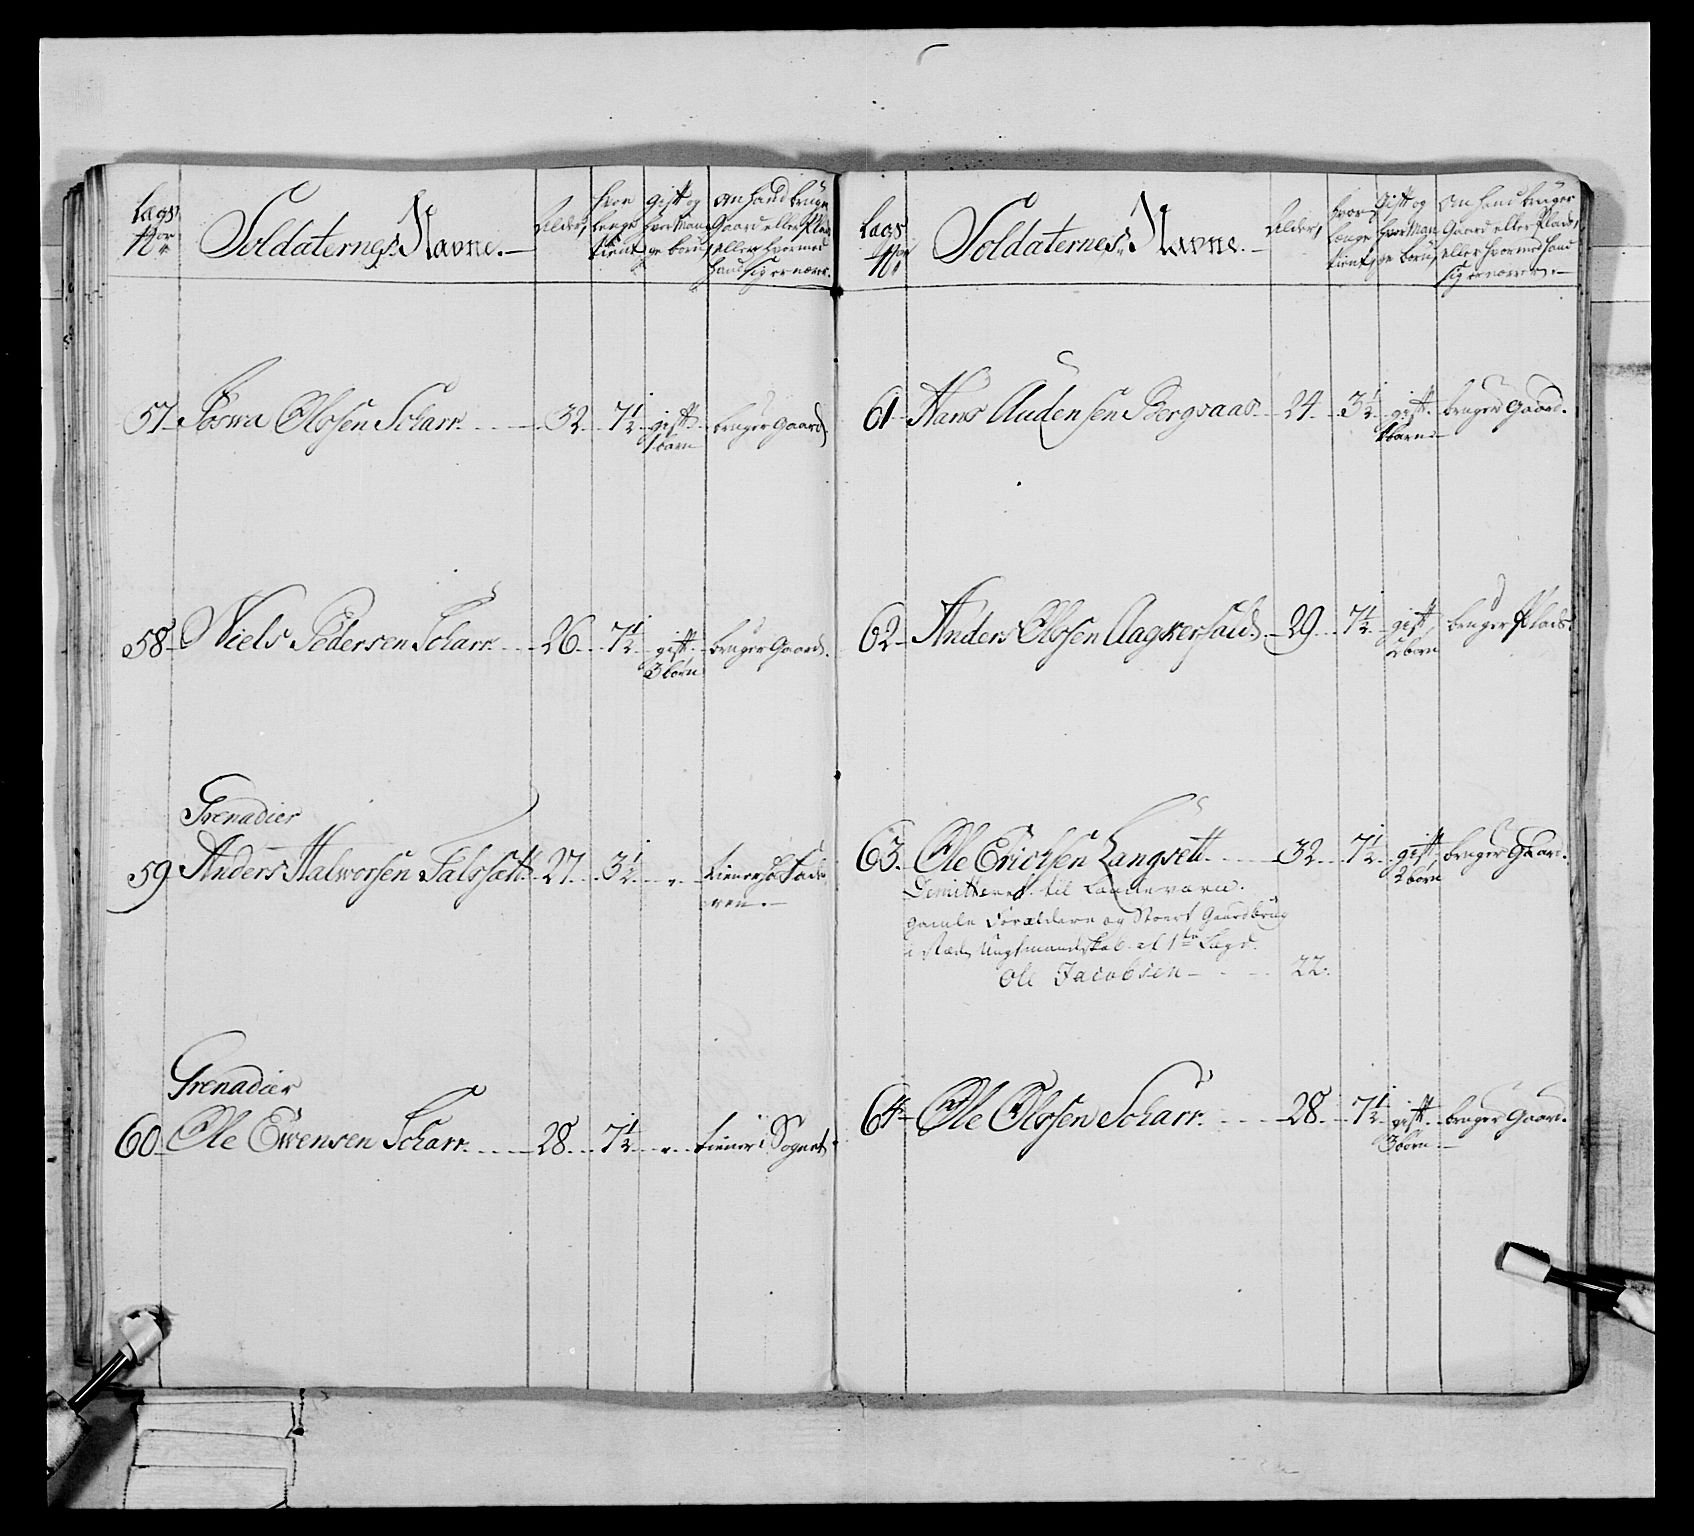 Lægs No
Soldaternes Navne.
Alder,
hvor længe tient,
gift og hvor Mange børn,
Om hand bruger Gaard eller Plads, eller hvormed hand sig ernærer.
57 Joswa Olssen Scharr 32 7½ gift bruger Gaard
1 barn
58 Niels Pedersen Scharr. 26 7½ gift. bruger Gaard.
3 børn
Grenadier
59 Anders Halworsen 27 3½ " tiener hos Fade
ren.
Grenadier
60 Ole Ewensen Scharr. 28 7½ " tiener i Sognet
Lægs No
Soldaternes Navne.
Alder,
hvor længe tient,
Gift og hvor Mange børn,
Om hand bruger Gaard eller Plads, eller hvormed hand sig ernærer.
61 Hans Audensen Bergsaas 24 3½ gift. bruger Gaard.
1 barn
62 Anders Olssen 29 7½ gift, bruger Plads.
2 børn
63. Ole Erichsen Langsett 32 7½ gift, bruger Gaard.
2 børn
Demitteret til Landeværn.
gamle Forældere og Stoert Gaardbrug
i stæd, Ungtmandskab af 1te Lægd.
Ole Jacobsen 22.
64 Ole Olssen Scharr. 28. 7½ gift. bruger Gaard.
3 børn